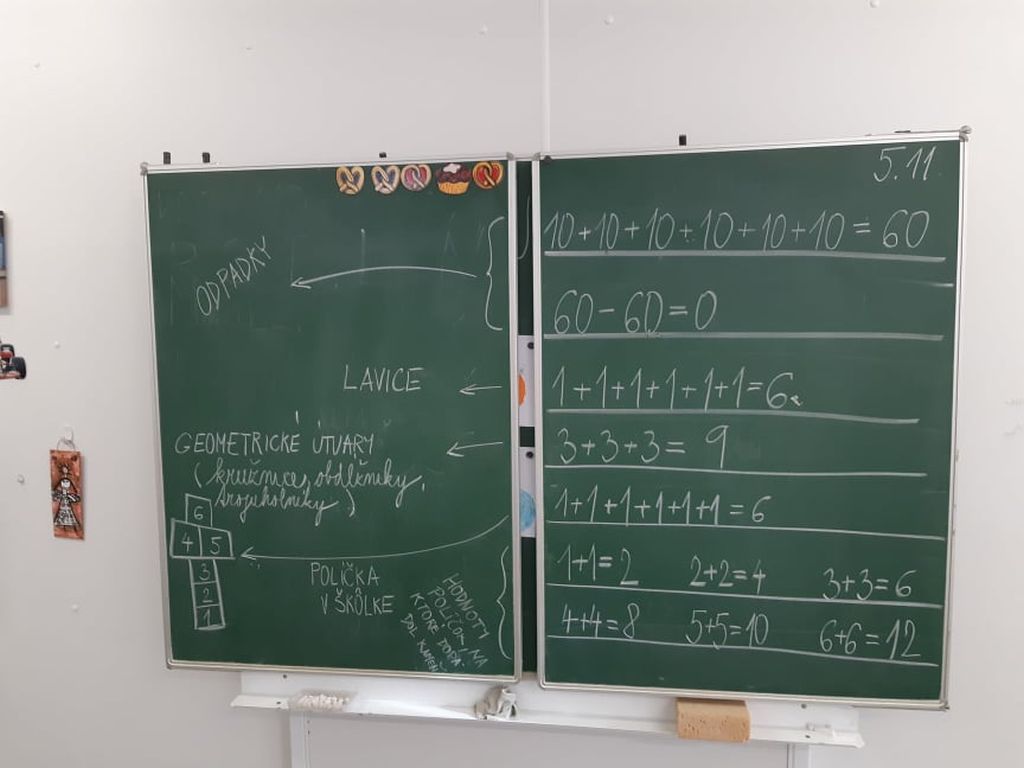 ODPADKY
LAVICE
GEOMETRICKÉ ÚTVARY
(kružnice, obdĺžniky,
trojuholníky)
6
4 5
3
2
1
POLÍČKA
V ŠKÔLKE
HODNOTY
POLÍČOK, NA
KTORÉ DOPA-
DOL KAMEŇ
5.11.
10+10+10+10+10+10=60
60-60=0
1+1+1+1+1+1=6
3+3+3=9
1+1+1+1+1+1=6
1+1=2 2+2=4 3+3=6
4+4=8 5+5=10 6+6=12